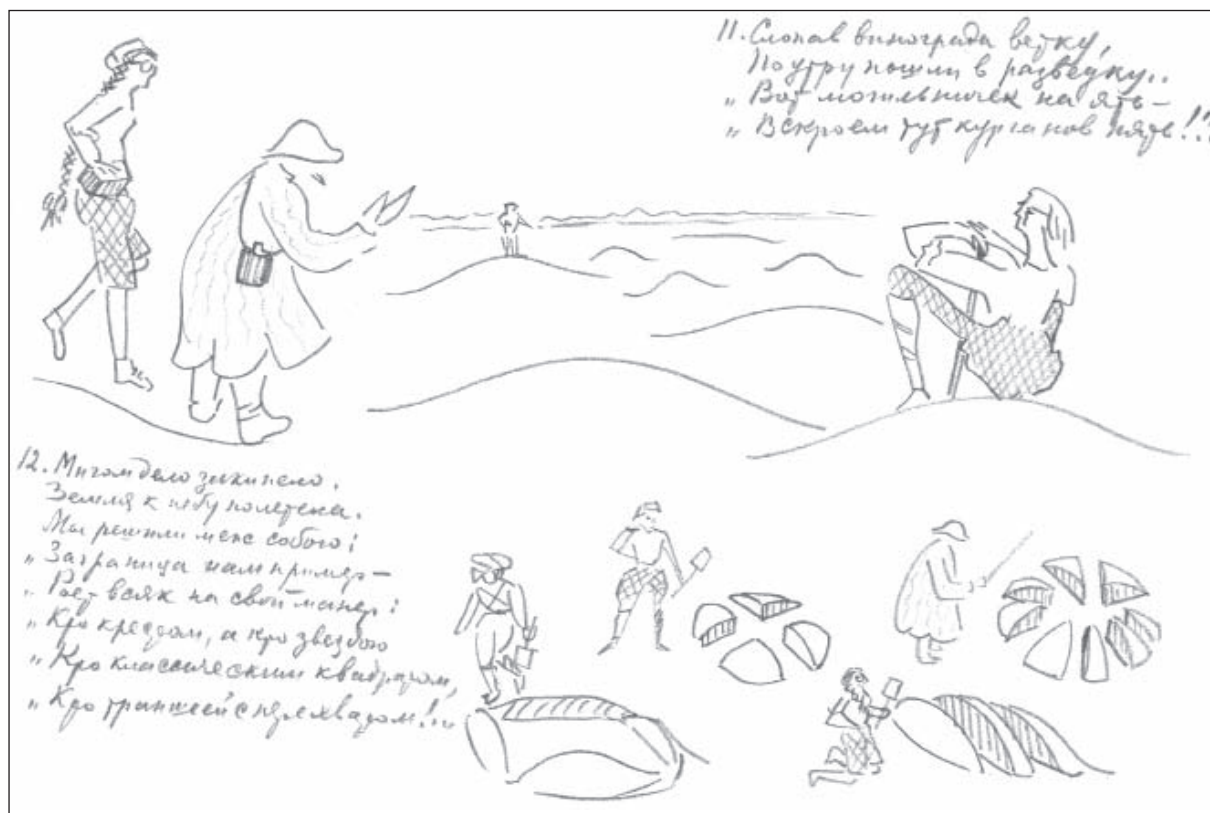 11. Слопав винограда ветку,
По утру пошли в разведку..
„ Вот могильничек на ять –
„ Вскроем тут курганов пять!!?
12. Мигом дело закипело.
Земля к небу полетела.
Мы решили меж собою:
„ Заграница нам пример –
„ Роет всяк на свой манер:
„ Кто крестом, а кто звездою
„ Кто классическим квадратом,
„ Кто траншеей с перехватом!..